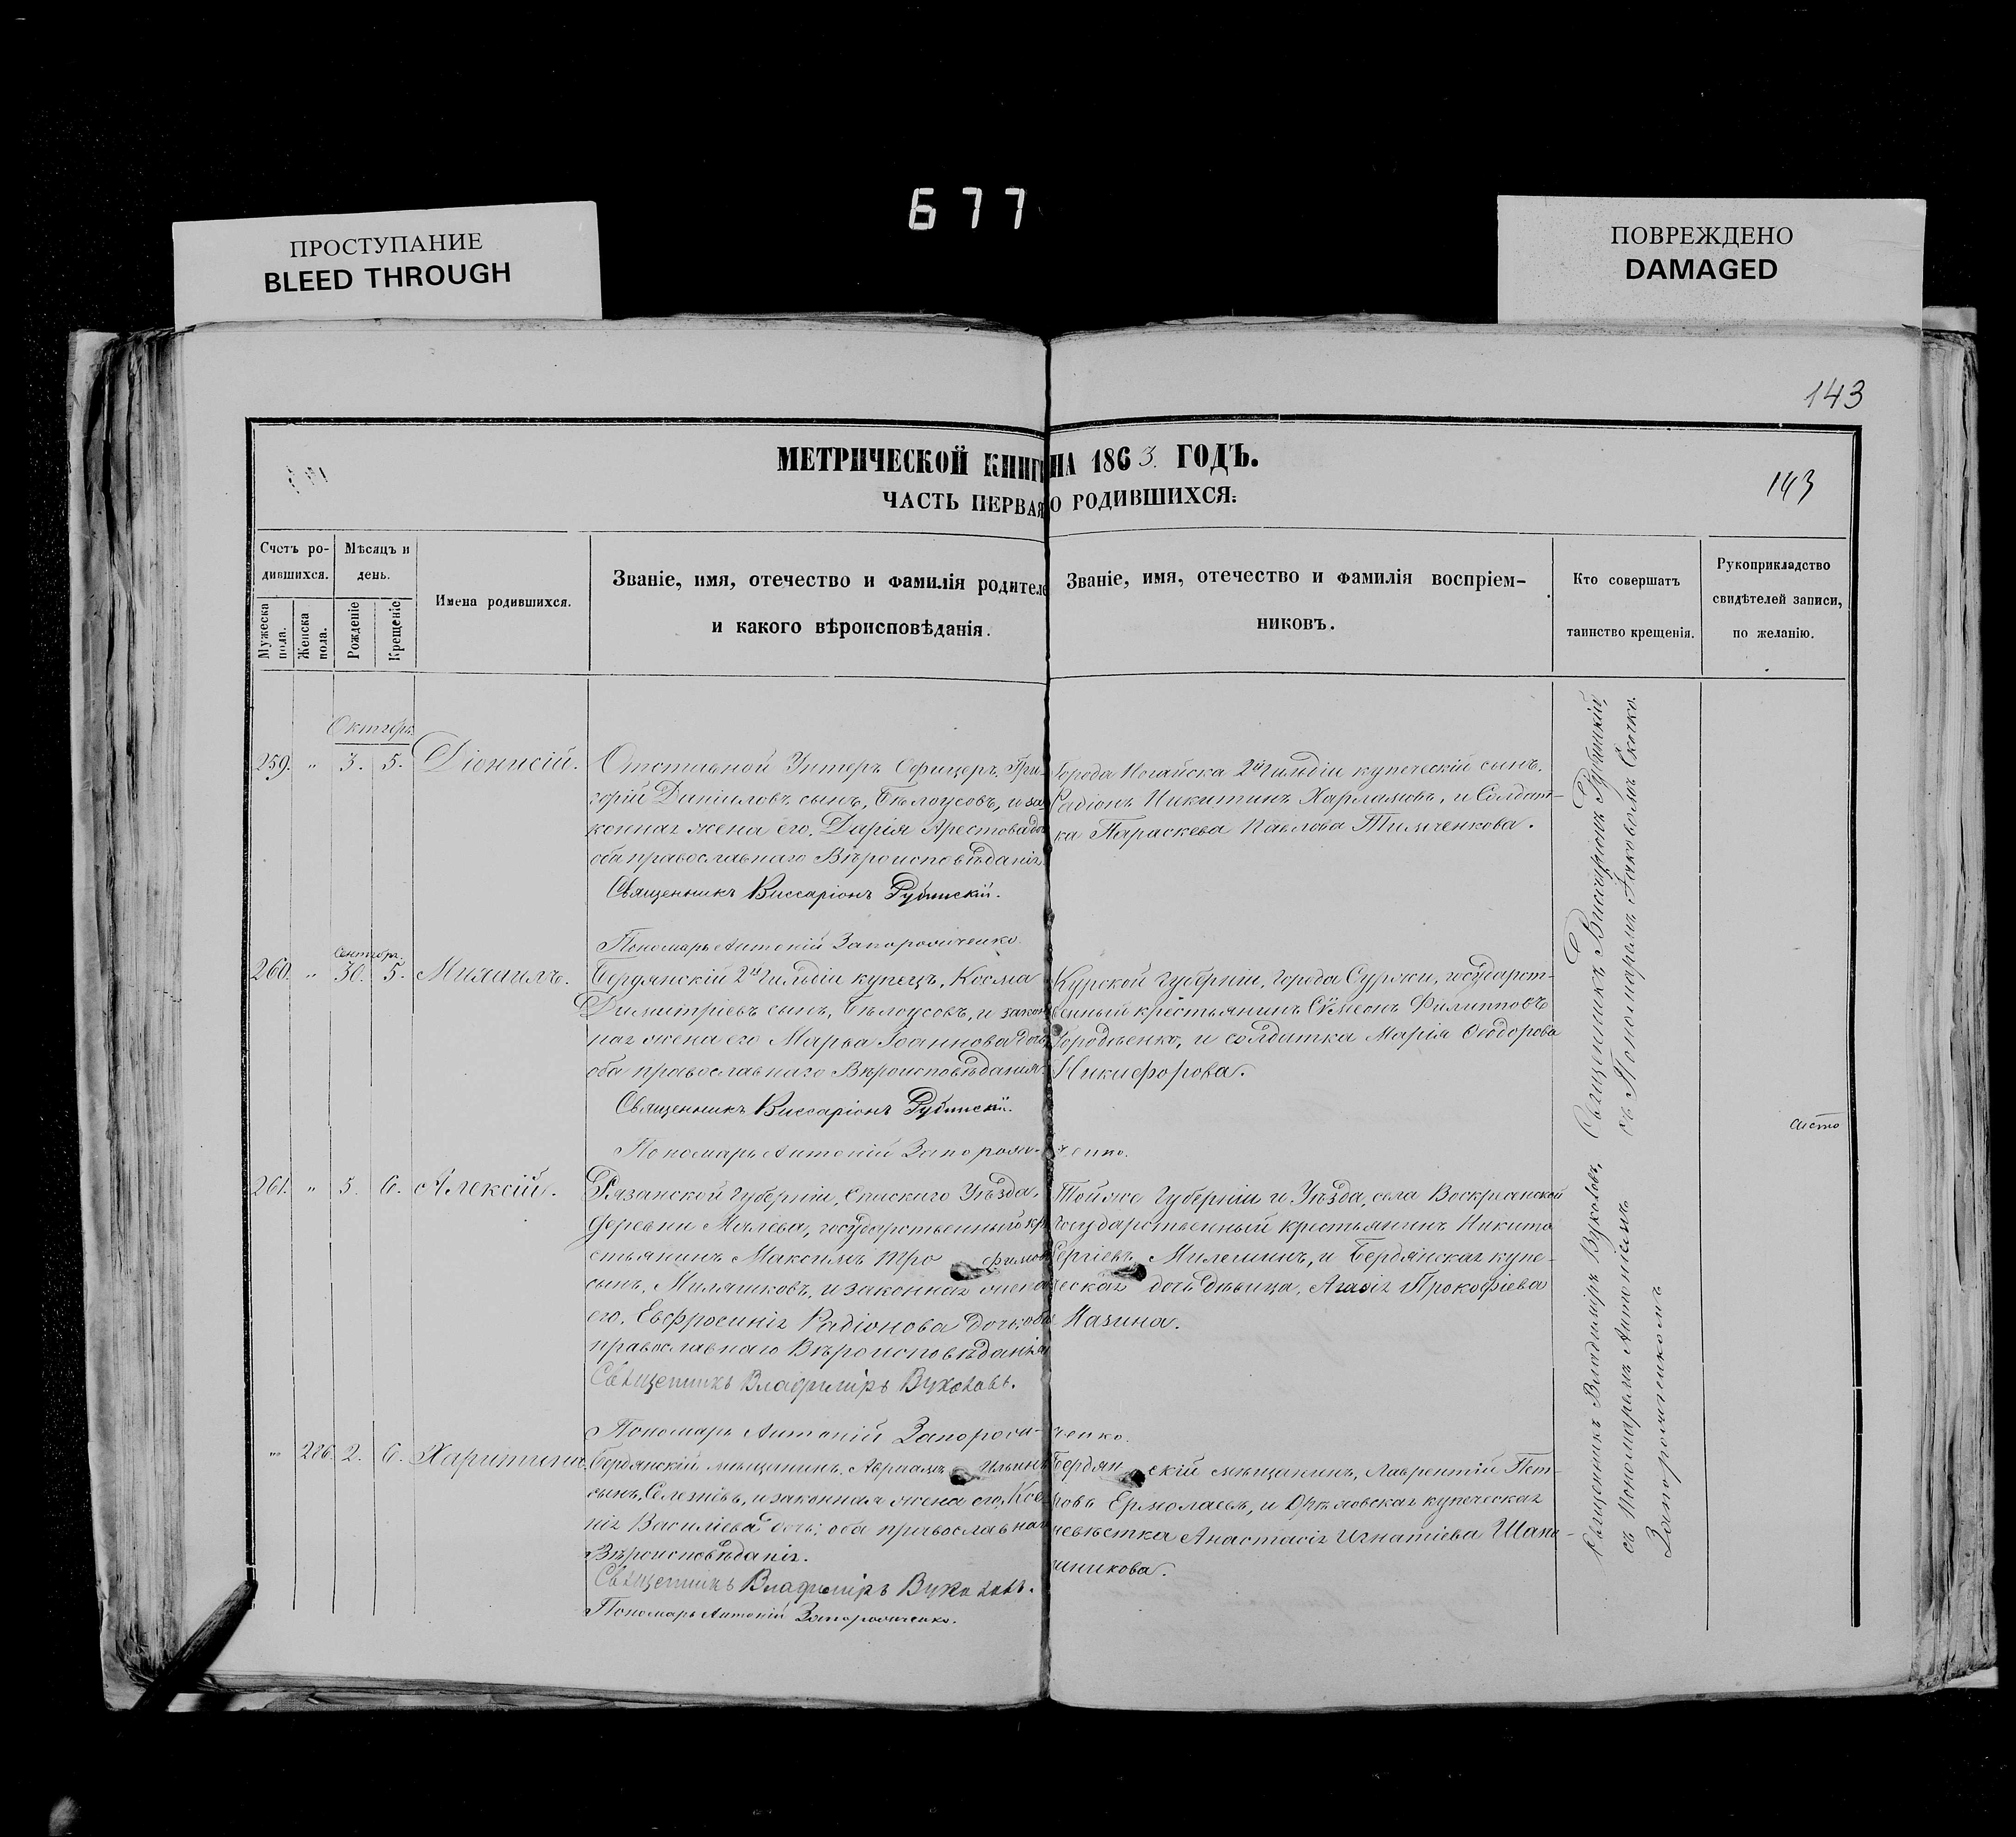 677
ПРОСТУПАНИЕ
BLEED THROUGH
ПОВРЕЖДЕНО
DAMAGED
143
МЕТРИЧЕСКОЙ КНИГ НА 1863. ГОДЪ.
143
ЧАСТЬ ПЕРВАЯ О РОДИВШИХСЯ:
Счетъ ро-
дившихся.
Мужеска пола.
Женска пола.
Мѣсяцъ и
день.
Рожденіе
Крещеніе
Имена родившихся.
Званіе, имя, отечество и фамилія родителе
и какого вѣроисповѣданія.
Званіе, имя, отечество и фамилія воспріем-
никовъ.
Кто совершатъ
таинство крещенія.
Рукоприкладство
свидѣтелей записи,
по желанію.
Октябрь.
259. " 3. 5. Діонисій.
Отставной Унтеръ Офицеръ, Гри-
горій Даніиловъ сынъ, Бѣлоусовъ, и за-
конная жена его, Дарія Арестова до
оба православнаго Вѣроисповѣданія.
Священникъ Виссаріонъ Рубинскій.
Пономарь Антоній Запорожченко.
Города Ногайска 2й Гильдіи купеческій сынъ,
Радіонъ Никитинъ Харламовъ, и Солдат-
ка Параскева Павлова Тимченкова.
Сентябрь.
260. " 30. 5. Михаилъ.
Бердянскій 2й Гильдіи купецъ, Косма
Димитріевъ сынъ, Бѣлоусовъ, и закон
ная жена его Марѳа Іоаннова дочь
оба православнаго Вѣроисповѣданія.
Священникъ Виссаріонъ Рубинскій.
Пономарь Антоній Запорожченко.
Курской Губерніи, города Суржи, государст-
венный крестьянинъ Сѵмеонъ Филипповъ
и солдатка Марія Ѳеодорова
Никифорова.
261. " 5. 6. Алексій.
Рязанской Губерніи, Спаскаго Уѣзда,
деревни государственный кр
стьянинъ Максимъ Трофимовъ
сынъ, Миляшковъ, и законная жена
его, Евфросинія Радіонова дочь; оба
православнаго Вѣроисповѣданія
Священникъ Владиміръ Вуколовъ.
Пономарь Антоній Запорожченко.
Тойже Губерніи и Уѣзда, села
государственный крестьянинъ Никита
Сергіевъ Милешинъ, и Бердянская купе-
ческая дочь дѣвица, Агаѳія Прокофіева
Назина.
" 226. 2. 6. Харитина.
Бердянскій мѣщанинъ, Авраамъ Ильинъ
сынъ, Селезнёвъ, и законная жена его, Ксе
нія Василіева дочь; оба православнаго
Вѣроисповѣданія.
Священникъ Владиміръ Вуколовъ.
Пономарь Антоній Запорожченко.
Бердянскій мѣщанинъ, Лаврентій Пет-
ровъ Ермолаевъ, и купеческая
невѣстка Анастасія Игнатіева
шникова.
Священникъ Виссаріонъ Рубинскій,
съ Пономаремъ Іаковомъ
Священникъ Владиміръ Вуколовъ,
съ Пономаремъ Антоніемъ
Запорожченкомъ